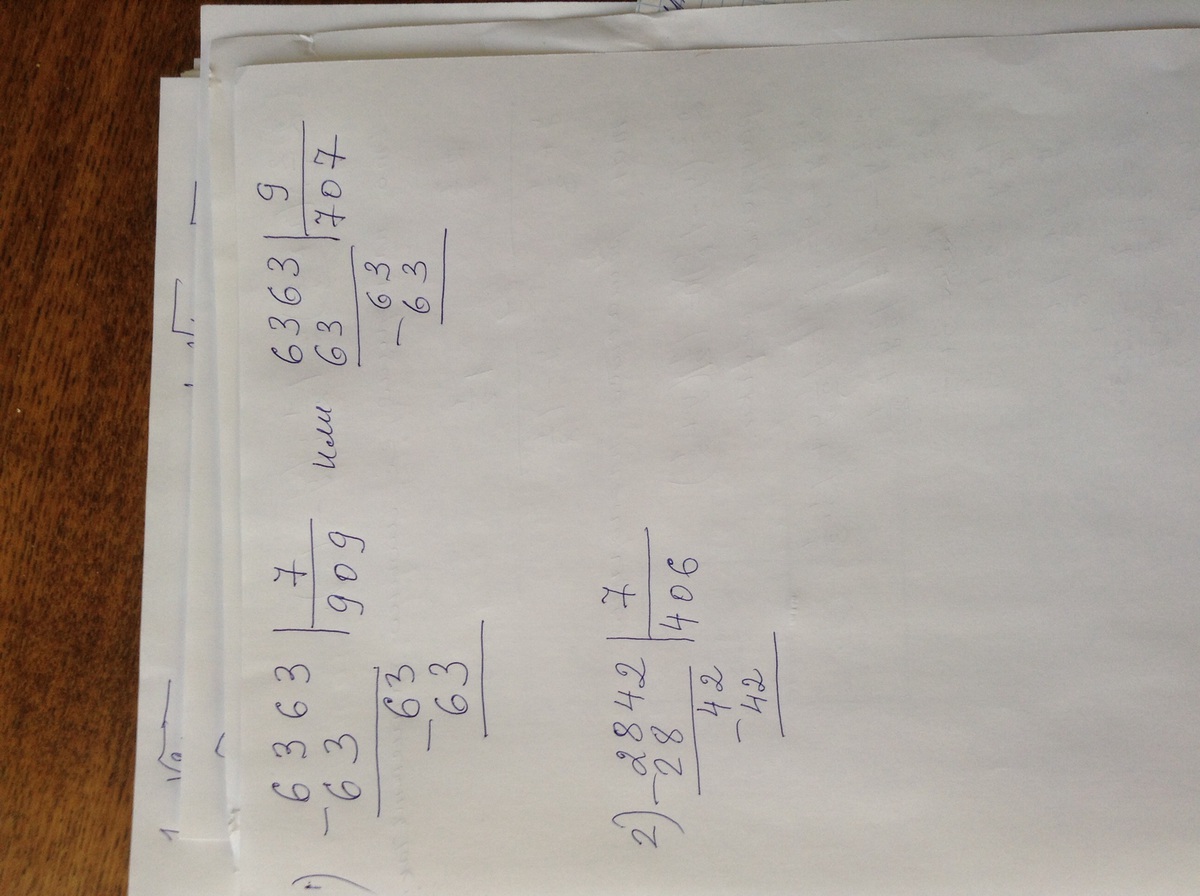 1) -6363 | 7 или 6363 | 9
63 | 909 63 | 707
-63 -63
63 63
2) -2842 | 7
28 | 406
-42
42